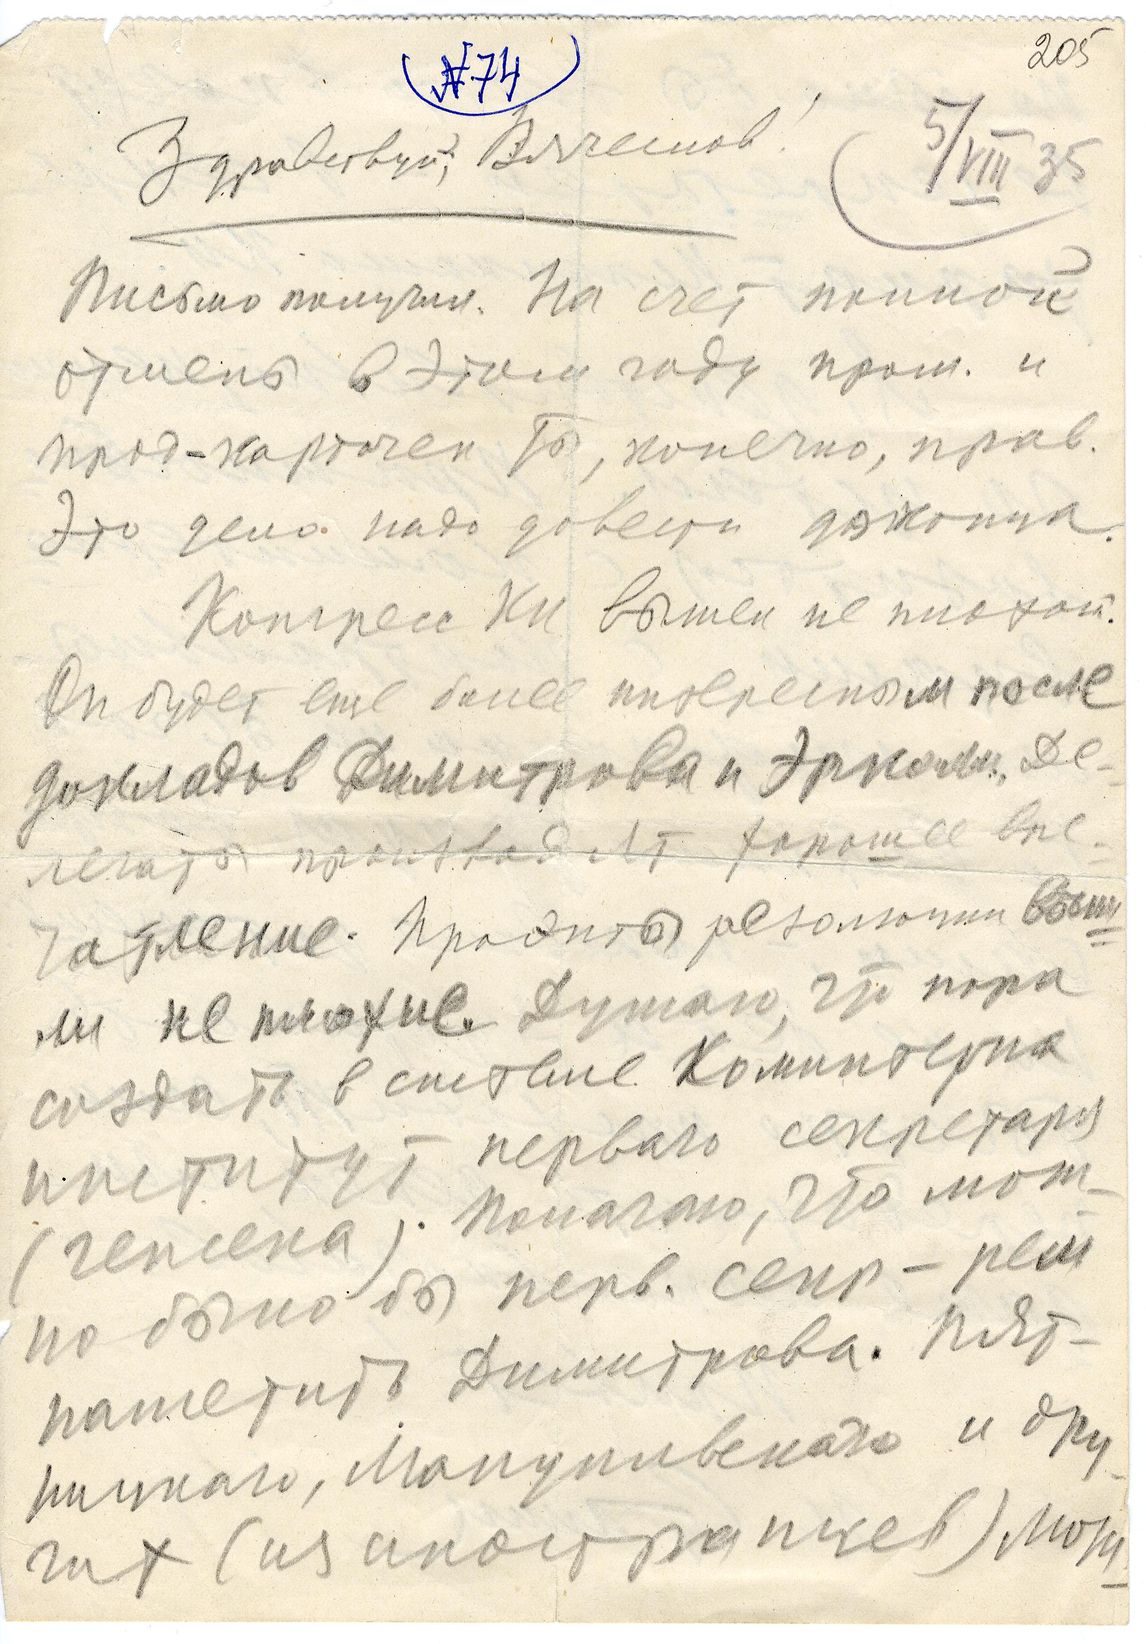 205
№74
5/VIII 35
Здравствуй, Вячеслав!
Письмо получил. На счет полной
отмены в этом году пром. и
прод-карточек ты, конечно, прав.
Это дело надо довести до конца.
Конгресс КИ вышел не плохой.
Он будет еще более интересным после
докладов Димитрова и Эрколи. Де-
легаты производят хорошее впе-
чатление. Проэкты резолюции выш
ли не плохие. Думаю, что пора
создать в системе Коминтерна
институт первого секретаря
(генсека). Полагаю, что мож-
но было бы перв. секр-рем
наметить Димитрова. Пят-
ницкого, Мануильского и дру-
гих (из иностранцев) можн